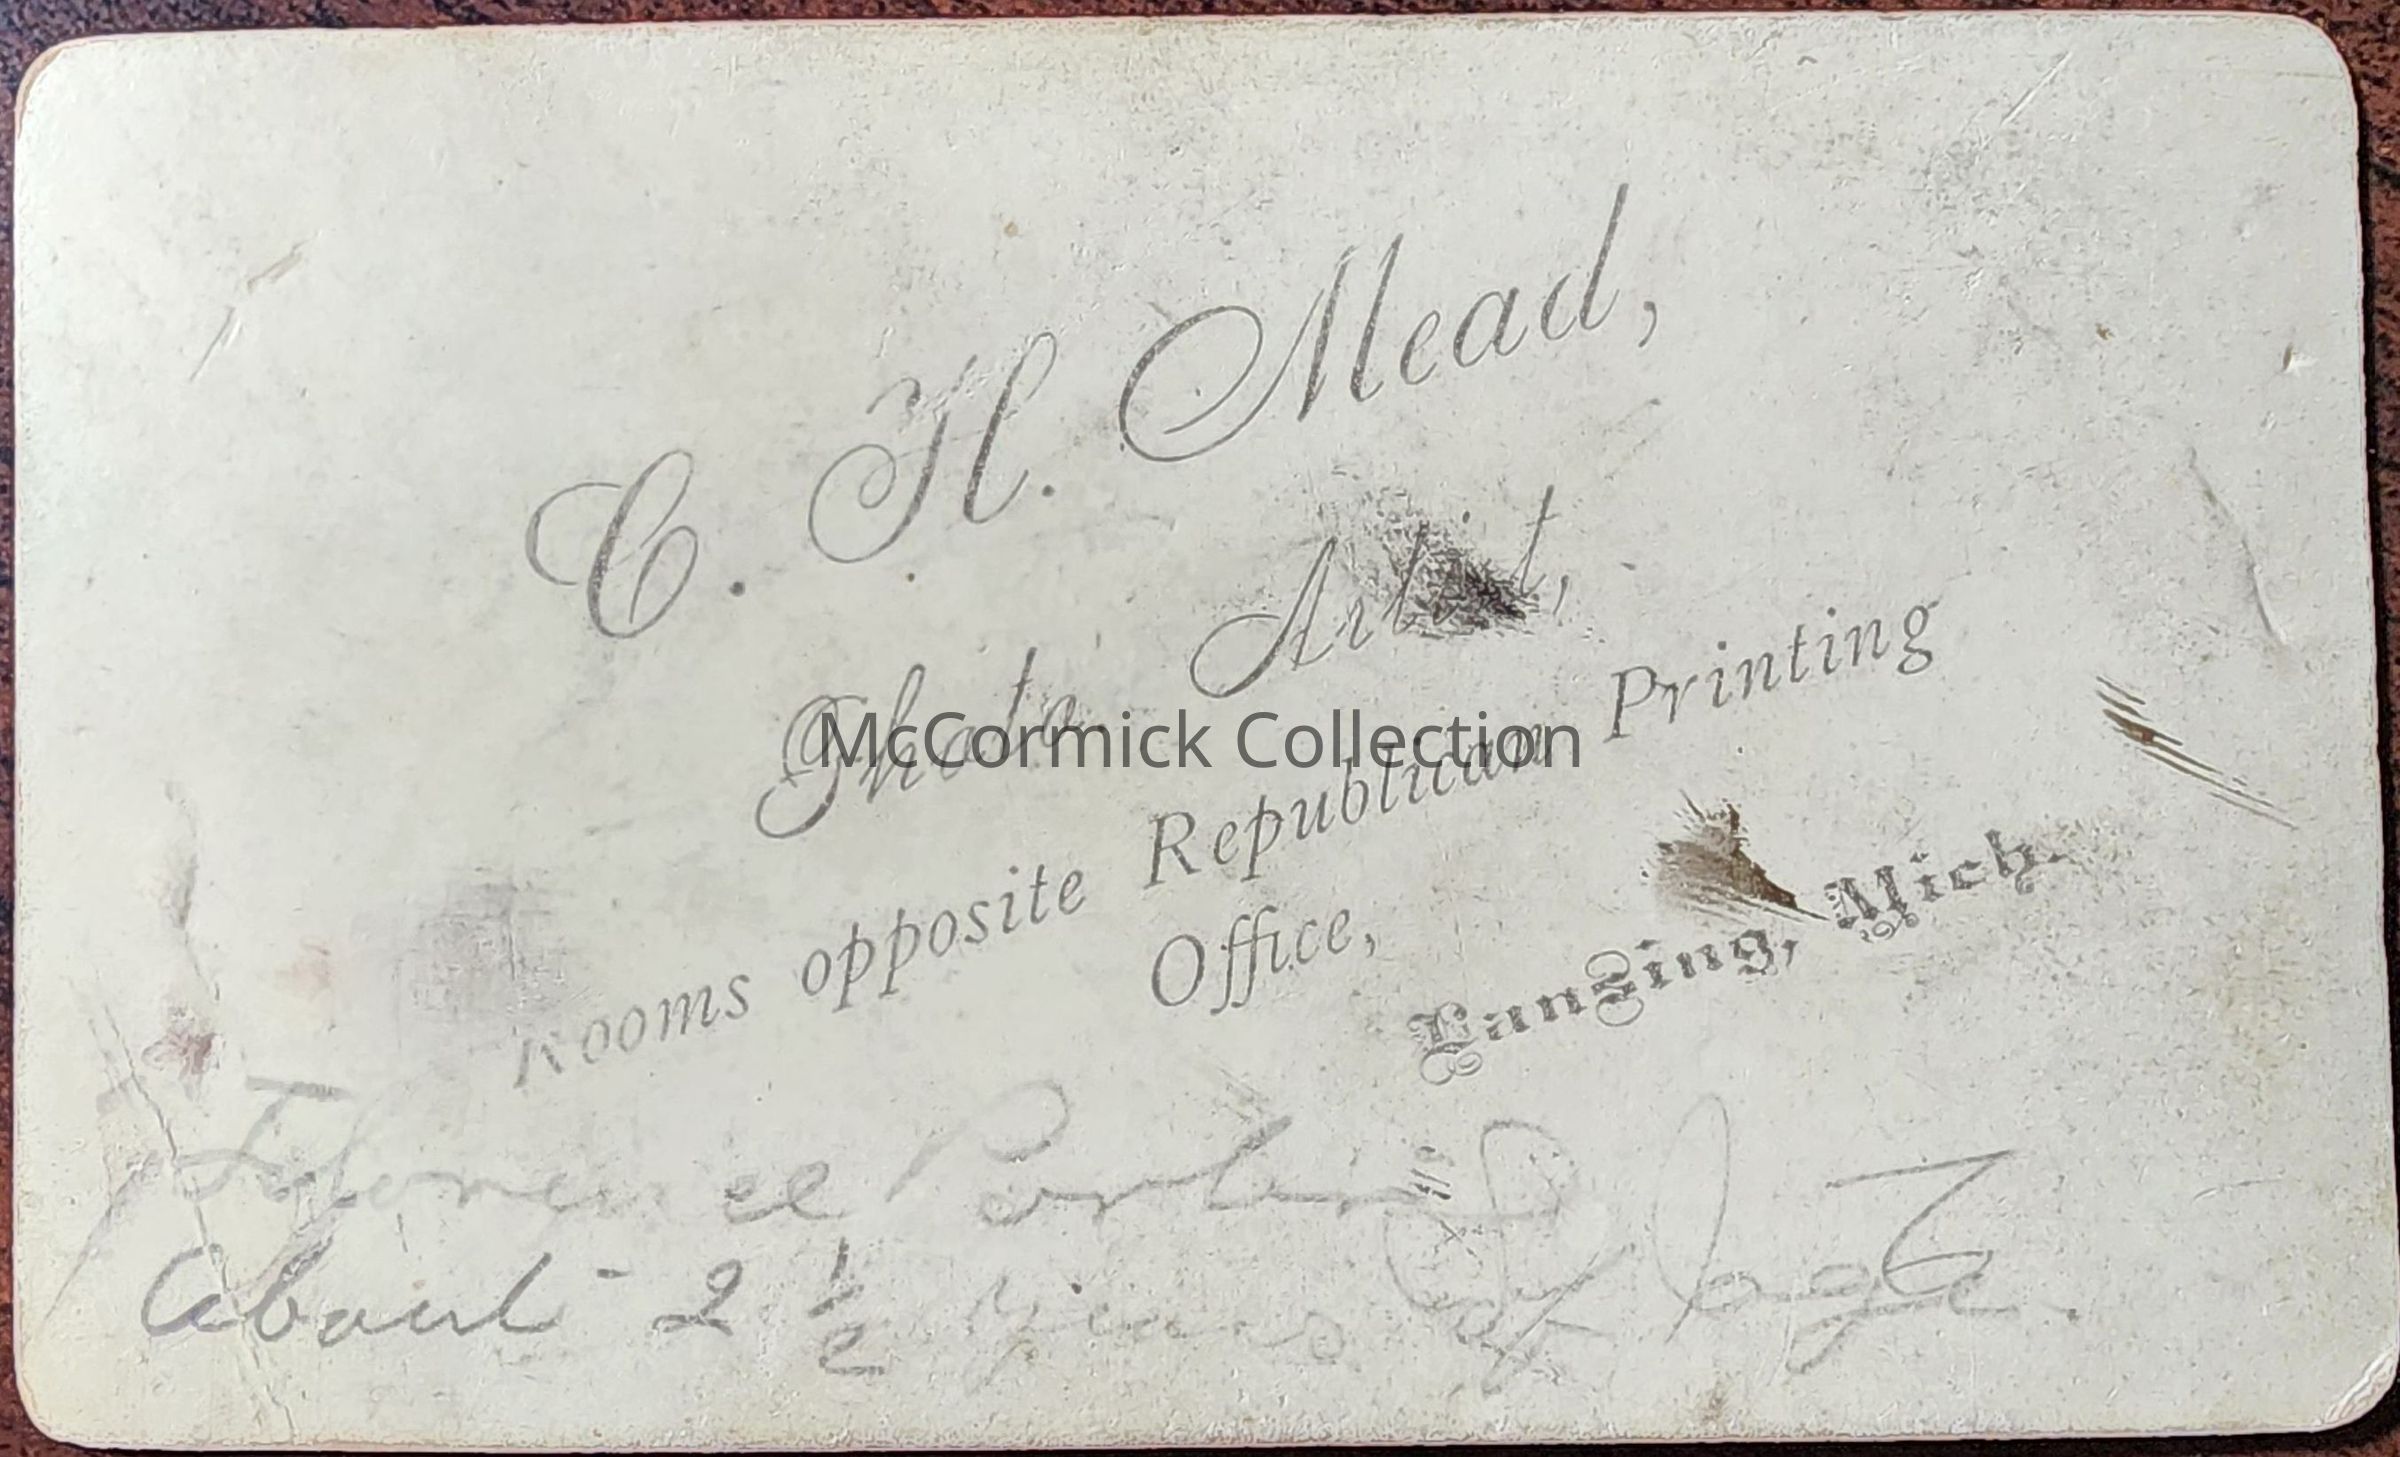 C. H. Mead,
Photo. Artist,
McCormick Collection
Rooms opposite Republican Printing
Office,
Lansing, Mich.
Florence Porter
About 2 1/2 years of age.